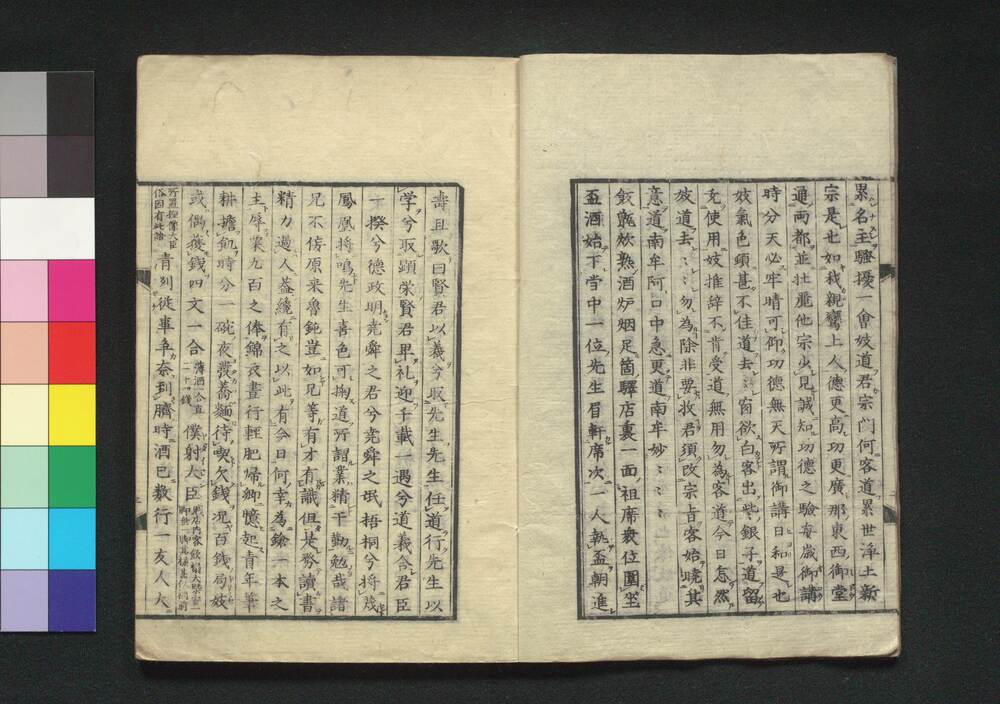 累名至騒擾一會妓道君宗門何客道累世淨土新
宗是也如我親鸞上人德更高功更廣那東西御堂
通両都並壮麗他宗少見誠知功德之驗每歳御講
時分天必牢晴可仰功德無天所謂御講日和是也
妓氣色頗甚不佳道去〻窗欲白客出些銀子道留
充使用妓推辞不肯受道無用勿為客道今日怎然
妓道去〻〻勿為除非要救君須改宗旨客始曉其
意道南牟阿口中急更道南牟妙〻〻〻
飣氈炊熟酒炉烟足箇驛店裏一面祖席衆位團坐
盃酒始下堂中一位先生眉軒席次一人執盃朝進
壽且歌曰賢君以義兮取先生先生任道行先生以
学兮取顕栄賢君卑礼迎千載一遇兮道義合君臣
一揆兮德政明尭舜之君兮尭舜之氓梧桐兮将茂
鳳凰将鳴先生喜色可掬道所謂業精于勤勉哉諸
兄不佞原来魯鈍豈如兄等有才有識但是努讀書
精力過人蓋纔有之以此有今日何幸為鎗一本之
主辱業九百之俸錦衣晝行軽肥帰郷憶起青年筆
耕擔飢時分一碗夜發蕎麺待喫欠銭况百銭局妓
或偶獲銭四文一合 薄酒一合直二十四銭 僕射大臣
俗因有此諺 青刻徒事争奈到臍時酒已数行一友人大